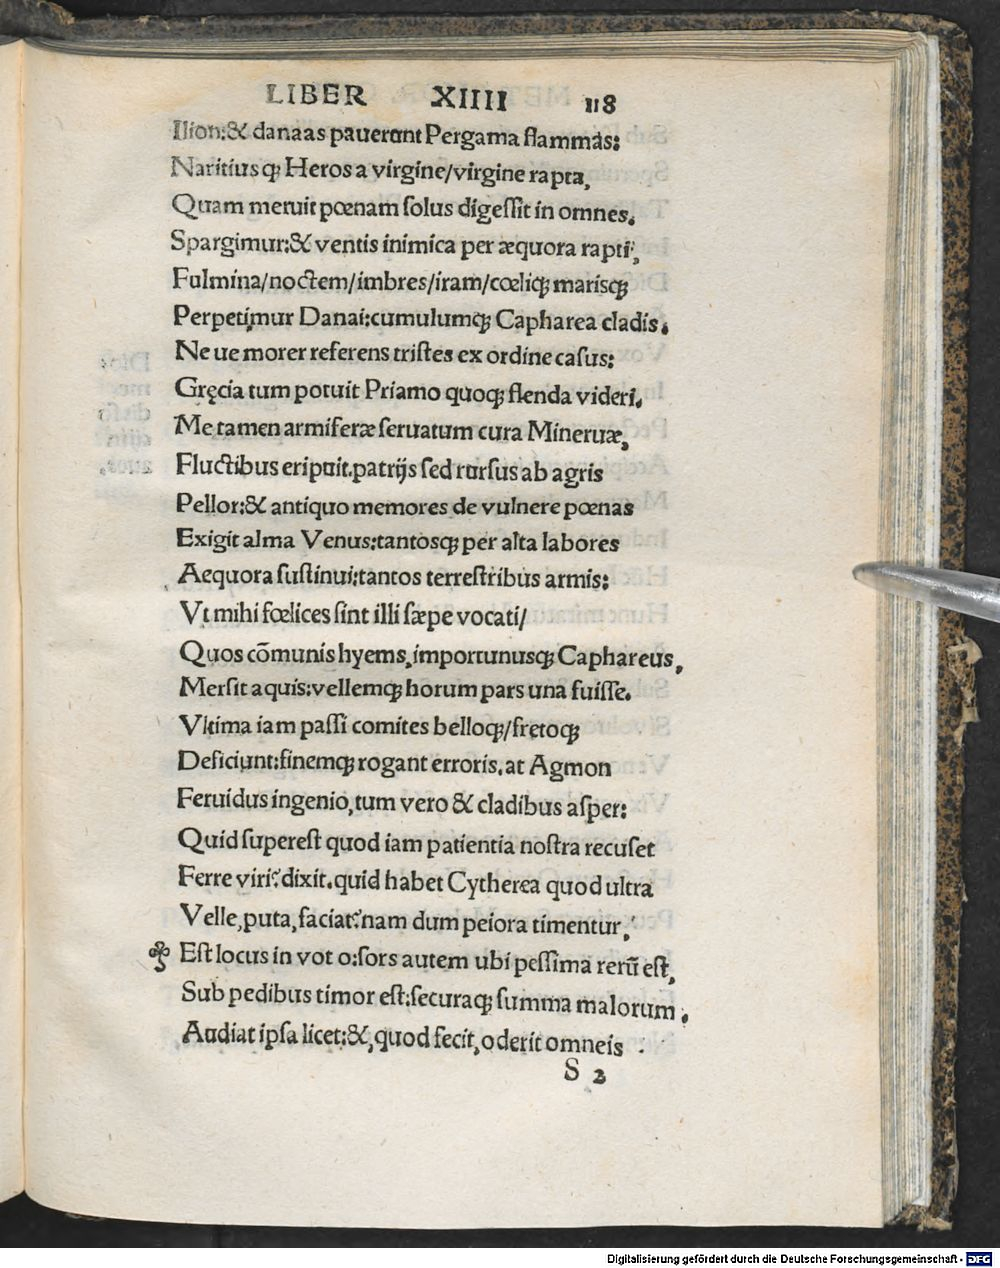 LIBER XIIII 118
Ilion:& danaas paverunt Pergama flammas:
Naritiusqꝫ Heros a virgine/virgine rapta,
Quam meruit pœnam solus digessit in omnes.
Spargimur:& ventis inimica per æquora rapti,
Fulmina/noctem/imbres/iram/cœliqꝫ marisqꝫ
Perpetimur Danai:cumulumqꝫ Capharea cladis.
Ne ue morer referens tristes ex ordine casus:
Gręcia tum potuit Priamo quoqꝫ flenda videri.
Me tamen armiferæ seruatum cura Mineruæ,
Fluctibus eripuit.patrijs sed rursus ab agris
Pellor:& antiquo memores de vulnere pœnas
Exigit alma Venus:tantosqꝫ per alta labores
Aequora sustinui:tantos terrestribus armis:
Vt mihi fœlices sint illi sæpe vocati/
Quos cõmunis hyems,importunusqꝫ Caphareus,
Mersit aquis:vellemqꝫ horum pars una fuisse.
Vltima iam passi comites belloqꝫ/fretoqꝫ
Deficiunt:finemqꝫ rogant erroris.at Agmon
Feruidus ingenio,tum vero & cladibus asper:
Quid superest quod iam patientia nostra recuset
Ferre viri?dixit.quid habet Cytherea quod ultra
Velle,puta,faciat?nam dum peiora timentur,
Est locus in voto:sors autem ubi pessima rerũ est,
Sub pedibus timor est:securaqꝫ summa malorum.
Audiat ipsa licet:&,quod fecit,oderit omneis
S 2
Digitalisierung gefördert durch die Deutsche Forschungsgemeinschaft - DFG